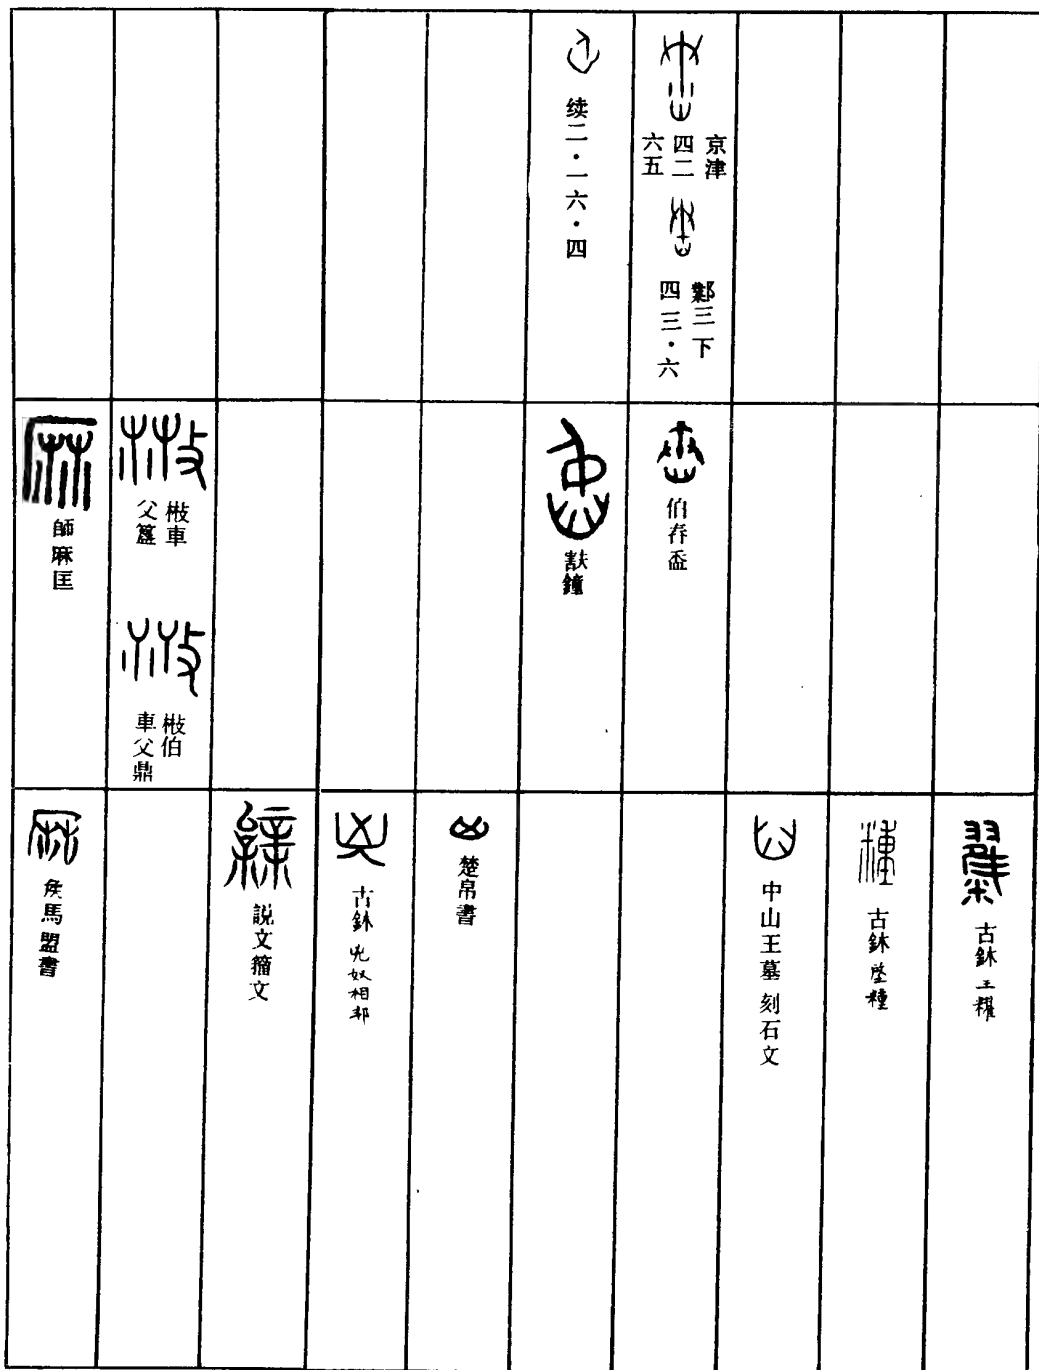 京津
四二
六五
鄴三下
四三·六
续二·一六·四
伯舂盉
㝬鐘
㪔車
父簋
㪔伯
車父鼎
師麻匡
古鉨 王糶
古鉨
中山王墓刻石文
楚帛書
古鉨 兇奴相邦
説文籀文
侯馬盟書